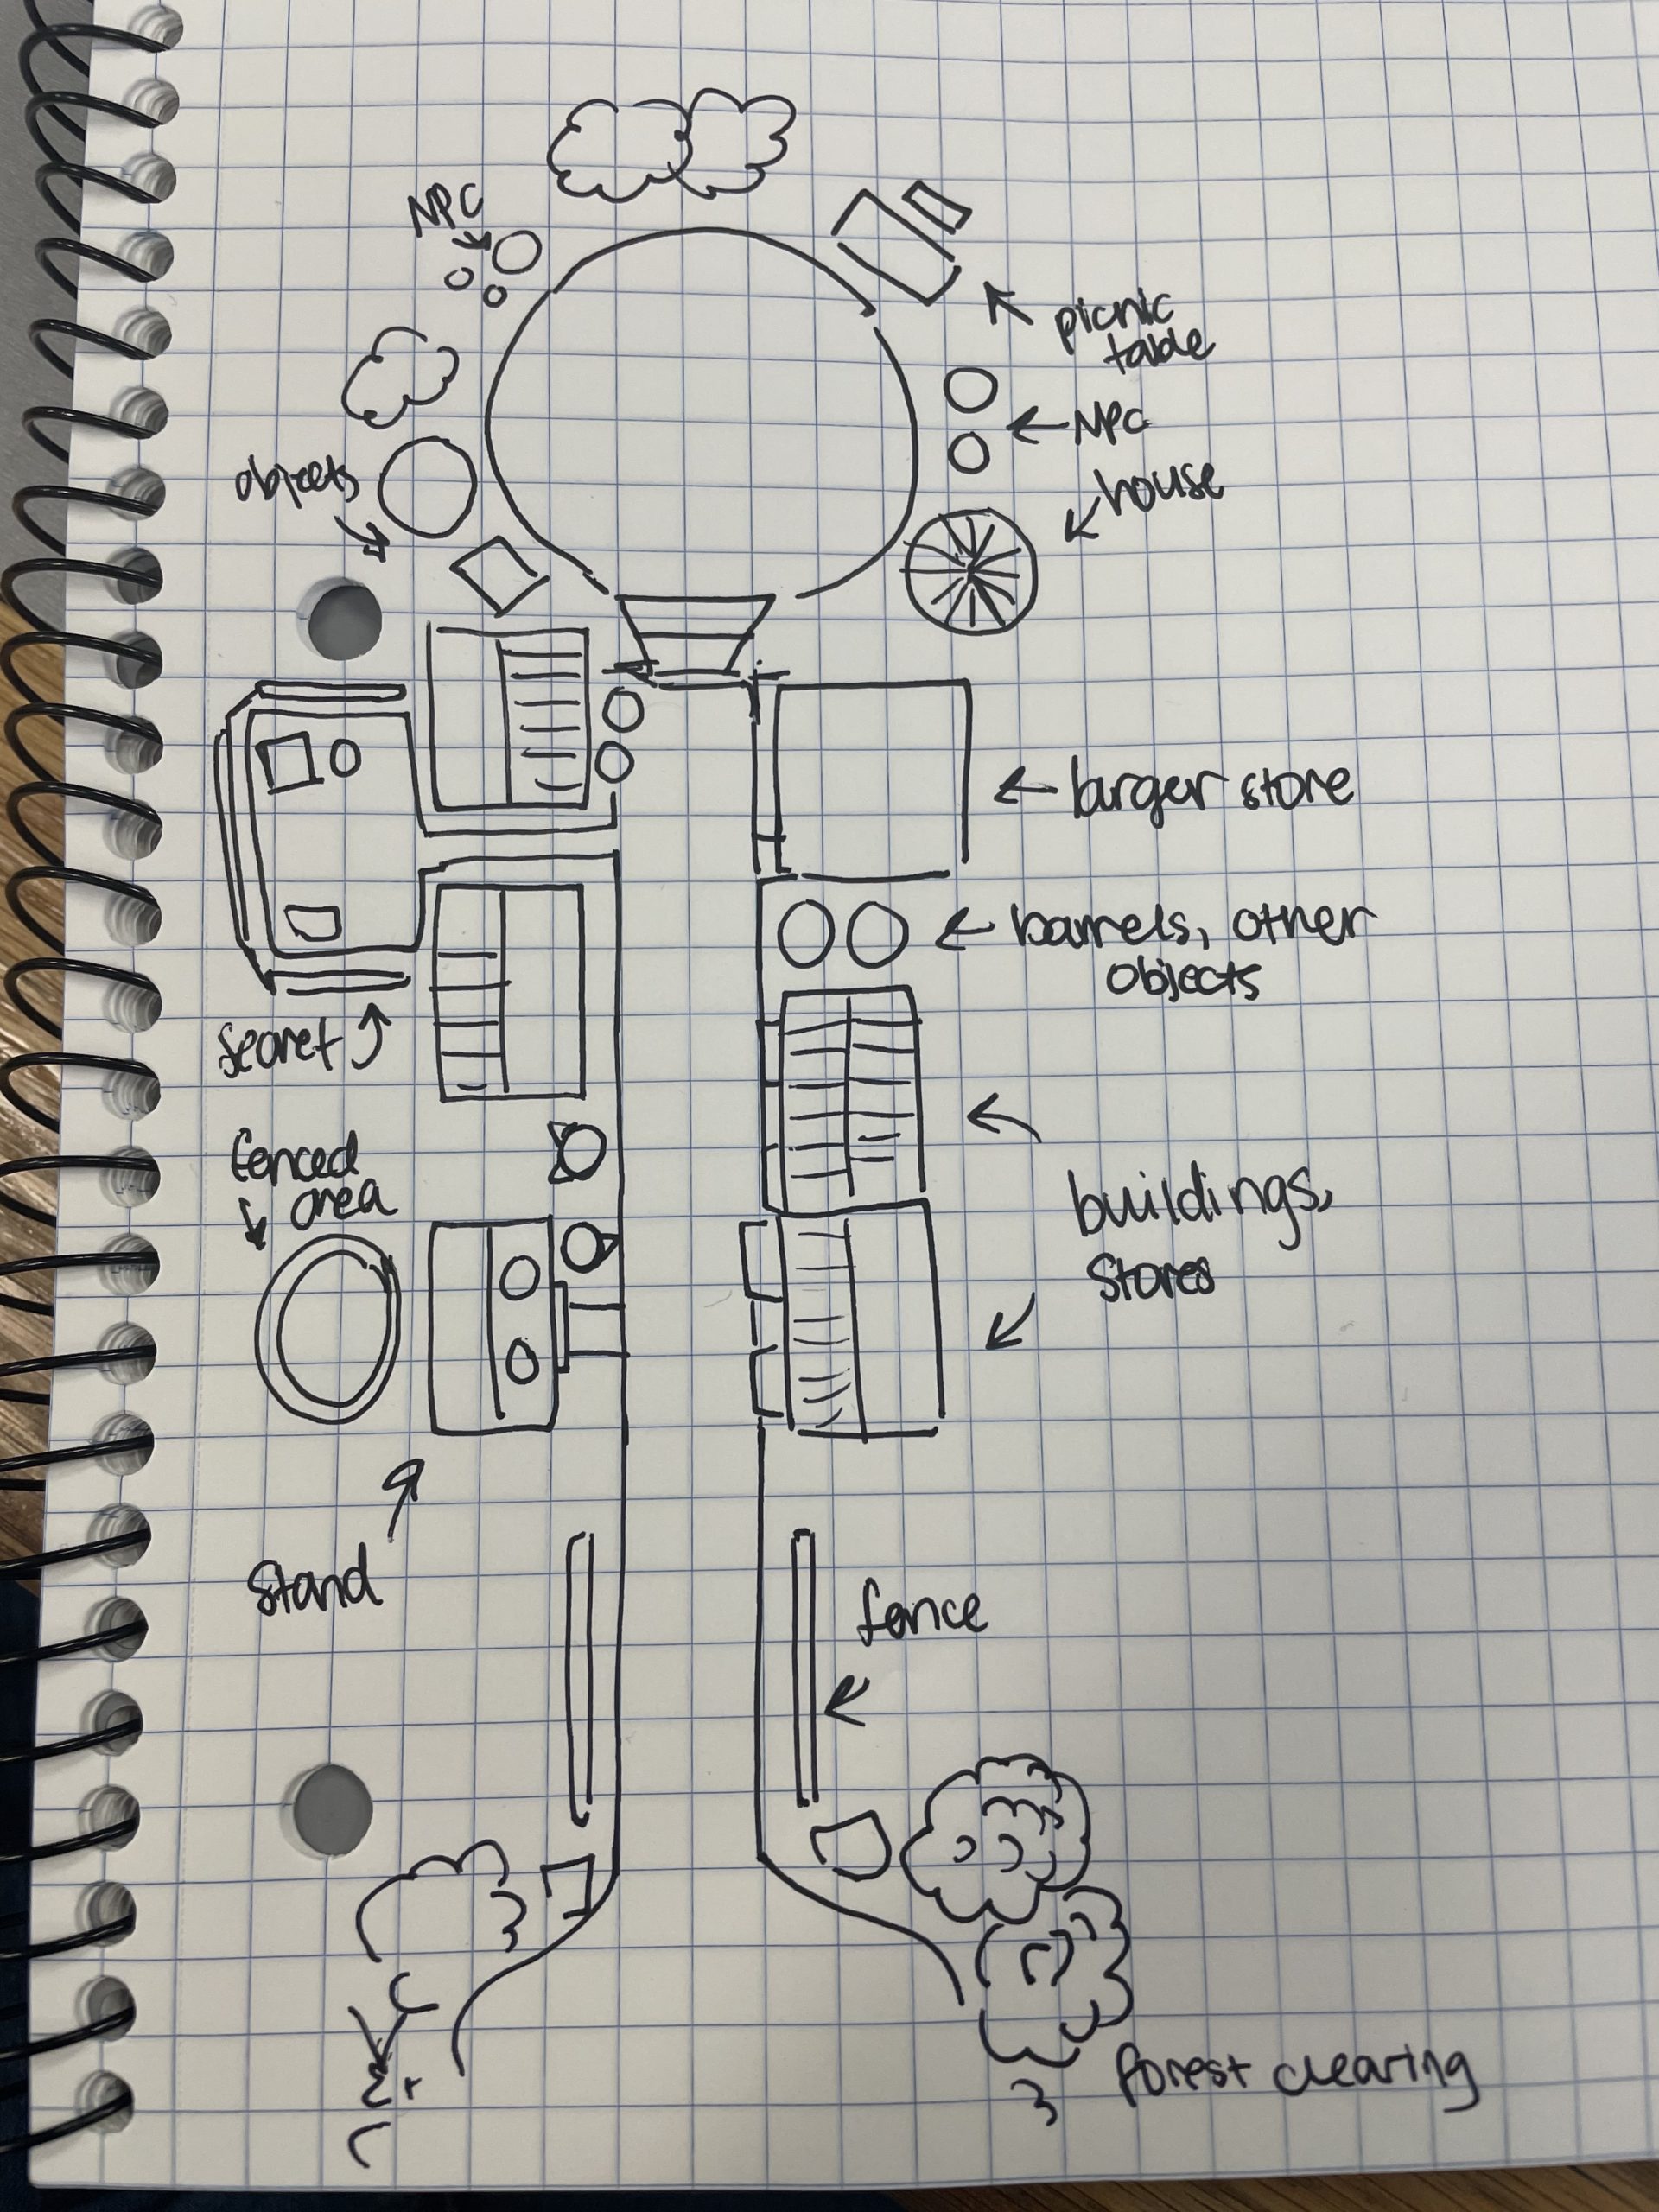 NPC
picnic
table
NPC
objects
house
larger store
barrels, other
objects
secret
fenced
area
buildings,
Stores
Stand
fence
forest clearing